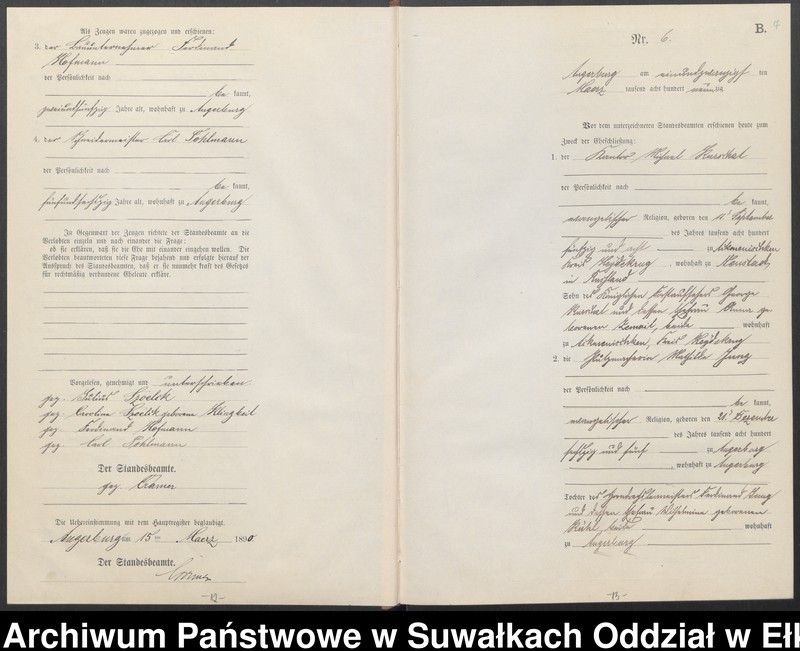 Als Zeugen waren zugezogen und erschienen:
3. der Bauunternehmer Ferdinand
Hofmann
der Persönlichkeit nach
be kannt,
zweiundfünfzig Jahre alt, wohnhaft zu Angerburg
4. der Schneidermeister Carl Pohlmann
der Persönlichkeit nach
be kannt,
fünfundsechzig Jahre alt, wohnhaft zu Angerburg
In Gegenwart der Zeugen richtete der Standesbeamte an die
Verlobten einzeln und nach einander die Frage:
ob sie erklären, daß sie die Ehe mit einander eingehen wollen. Die
Verlobten beantworteten diese Frage bejahend und erfolgte hierauf der
Ausspruch des Standesbeamten, daß er sie nunmehr kraft des Gesetzes
für rechtmäßig verbundene Eheleute erkläre.
Vorgelesen, genehmigt und unterschrieben
gez. Julius Tzoelik
gez. Caroline Tzoelik geborene
gez. Ferdinand Hofmann
gez. Carl Pohlmann
Der Standesbeamte.
gez. Cramer
Die Uebereinstimmung mit dem Hauptregister beglaubigt.
Angerburg am 15 ten Maerz 1890.
Der Standesbeamte.
Cramer
-12-
B. 7
Nr. 6.
Angerburg am einundzwanzigst ten
Maerz tausend acht hundert neunzig
Vor dem unterzeichneten Standesbeamten erschienen heute zum
Zweck der Eheschließung:
1. der Kantor Michael
der Persönlichkeit nach
be kannt,
evangelischer Religion, geboren den 11t September
des Jahres tausend acht hundert
fünfzig und acht zu
Kreis Heydekrug, wohnhaft zu
in Russland
Sohn des Königlichen Forstaufsehers George
und dessen Ehefrau Anna ge
borenen beide wohnhaft
zu Kreis Heydekrug
2. die Putzmacherin Mathilde Jung
der Persönlichkeit nach
be kannt,
evangelischer Religion, geboren den 21t Dezember
des Jahres tausend acht hundert
sechzig und fünf zu Angerburg
, wohnhaft zu Angerburg
Tochter des Ferdinand Jung
und dessen Ehefrau Wilhelmine geborenen
beide wohnhaft
zu Angerburg
-13-
Archiwum Państwowe w Suwałkach Oddział w Ełk